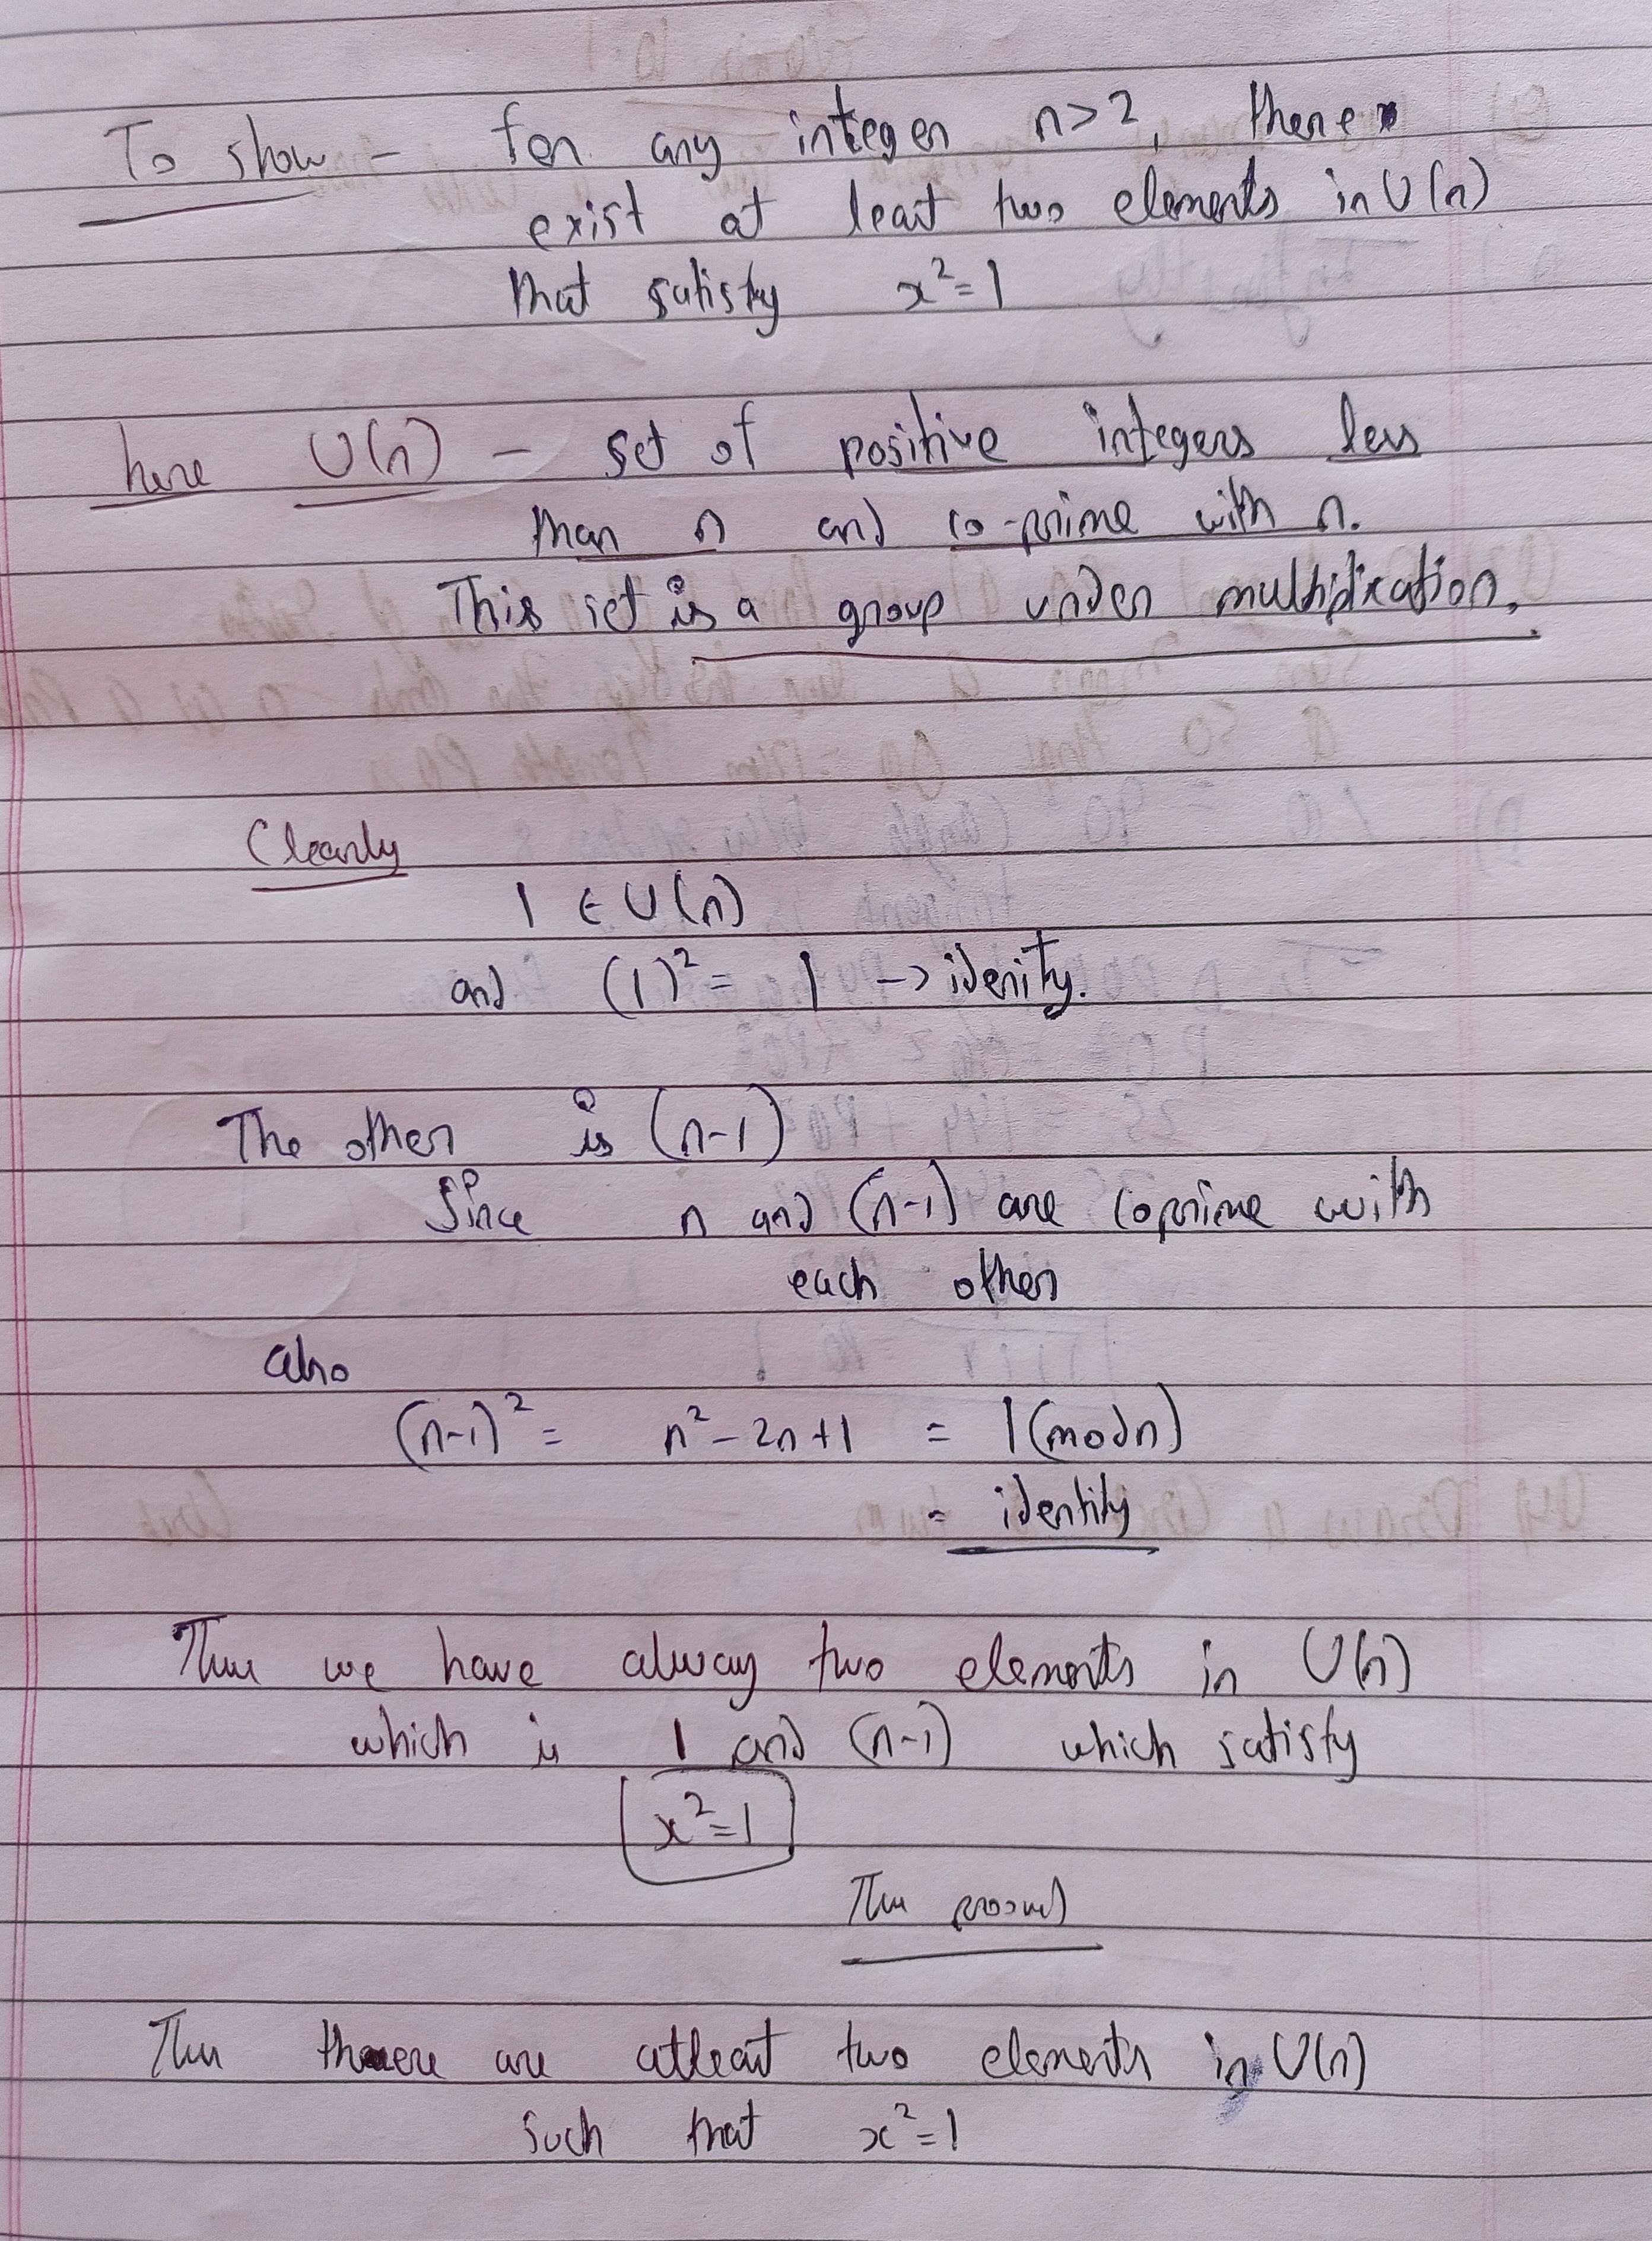 To show - for any integer n>2, there
exist at least two elements in U(n)
that satisfy x²=1
here U(n) - set of positive integers less
than n and co-prime with n.
This set is a group under multiplication.
Clearly
1 ∈ U(n)
and (1)² = 1 -> idenity.
The other is (n-1)
Since n and (n-1) are coprime with
each other
also
(n-1)² = n²-2n+1 = 1(mod n)
= identity
Thus we have alway two elements in U(n)
which is 1 and (n-1) which satisfy
x²=1
Thus proved
Thus there are atleast two elements in U(n)
such that x²=1